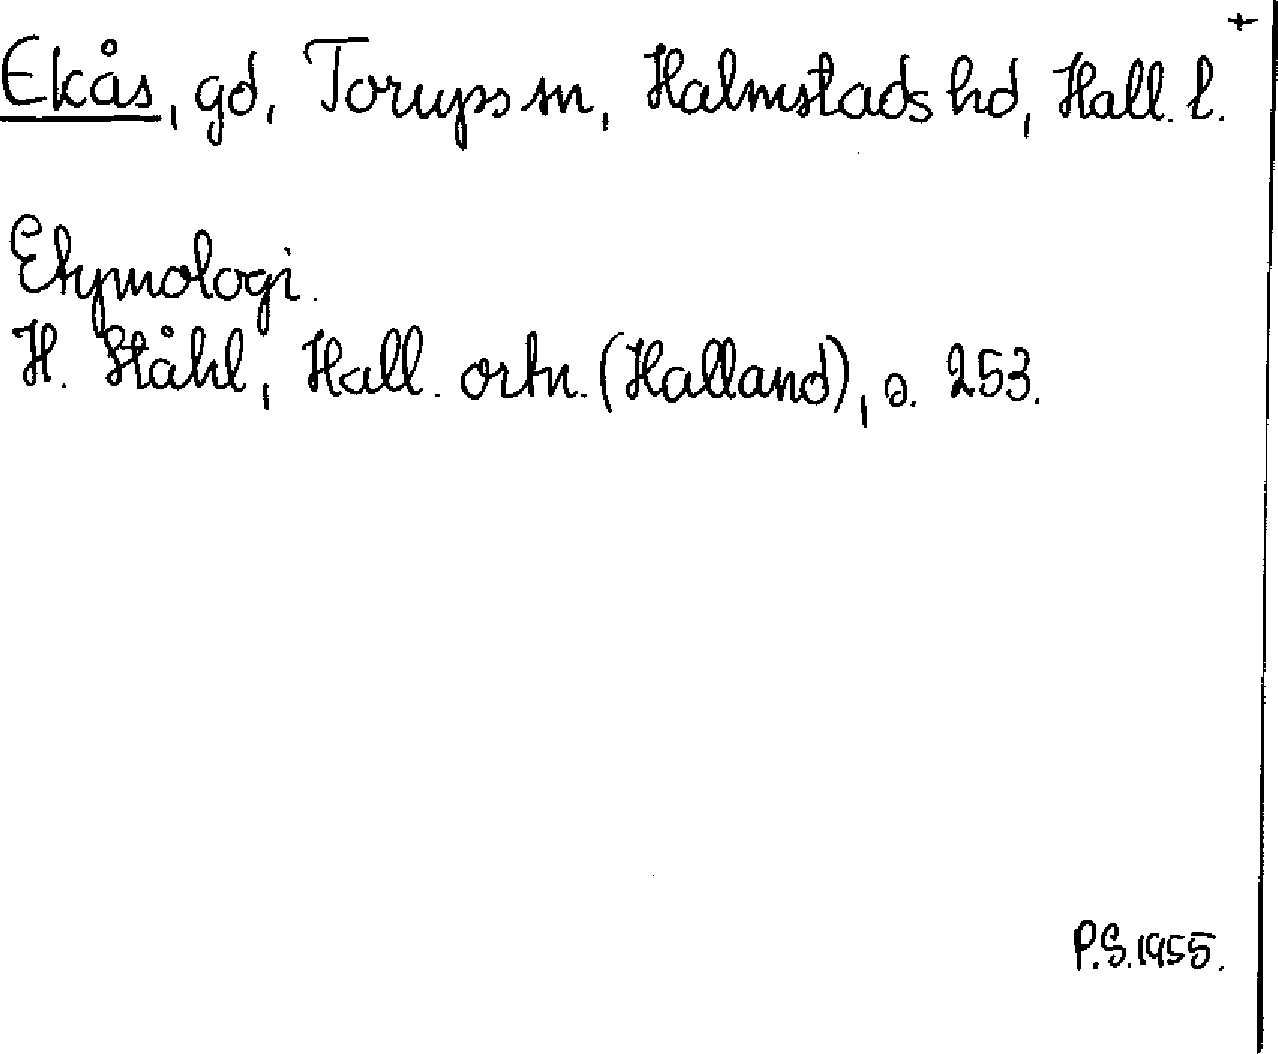 +
Ekås, gd, Torups sn, Halmstads hd, Hall. l.
Etymologi.
H. Ståhl, Hall. ortn. (Halland), s. 253.
P.S. 1955.